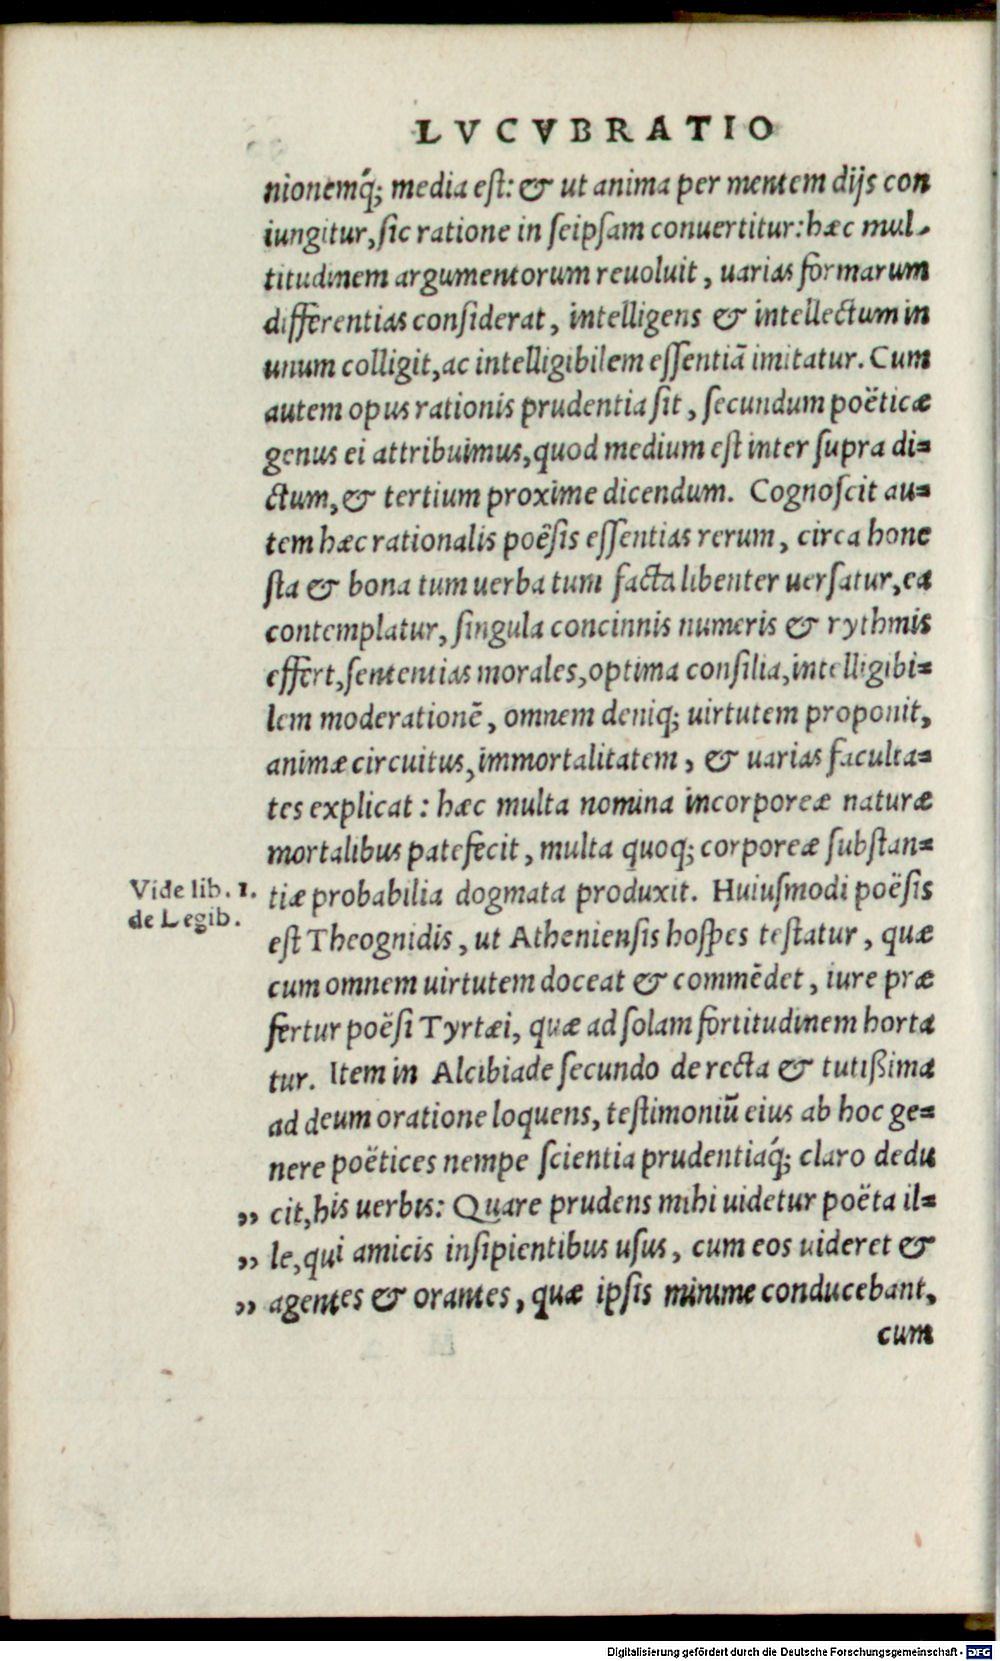 LVCVBRATIO
nionemq́; media est: & ut anima per mentem dijs con
iungitur, sic ratione in seipsam conuertitur: hæc mul-
titudinem argumentorum reuoluit, uarias formarum
differentias considerat, intelligens & intellectum in
unum colligit, ac intelligibilem essentiā imitatur. Cum
autem opus rationis prudentia sit, secundum poëticæ
genus ei attribuimus, quod medium est inter supra di=
ctum, & tertium proxime dicendum. Cognoscit au=
tem hæc rationalis poësis essentias rerum, circa hone
sta & bona tum uerba tum facta libenter uersatur, ea
contemplatur, singula concinnis numeris & rythmis
effert, sententias morales, optima consilia, intelligibi=
lem moderationē, omnem deniq; uirtutem proponit,
animæ circuitus, immortalitatem, & uarias faculta=
tes explicat: hæc multa nomina incorporeæ naturæ
mortalibus patefecit, multa quoq; corporeæ substan=
Vide lib. 1. tiæ probabilia dogmata produxit. Huiusmodi poësis
de Legib. est Theognidis, ut Atheniensis hospes testatur, quæ
cum omnem uirtutem doceat & commēdet, iure præ
fertur poësi Tyrtæi, quæ ad solam fortitudinem horta
tur. Item in Alcibiade secundo de recta & tutißima
ad deum oratione loquens, testimoniū eius ab hoc ge=
nere poëtices nempe scientia prudentiaq́; claro dedu
,, cit, his uerbis: Quare prudens mihi uidetur poëta il=
,, le, qui amicis insipientibus usus, cum eos uideret &
,, agentes & orantes, quæ ipsis minime conducebant,
cum
Digitalisierung gefördert durch die Deutsche Forschungsgemeinschaft - DFG